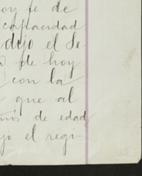 oy fe de
capacidad
dijo el Se
de hoy
con la
que al
de edad
jo el regi-